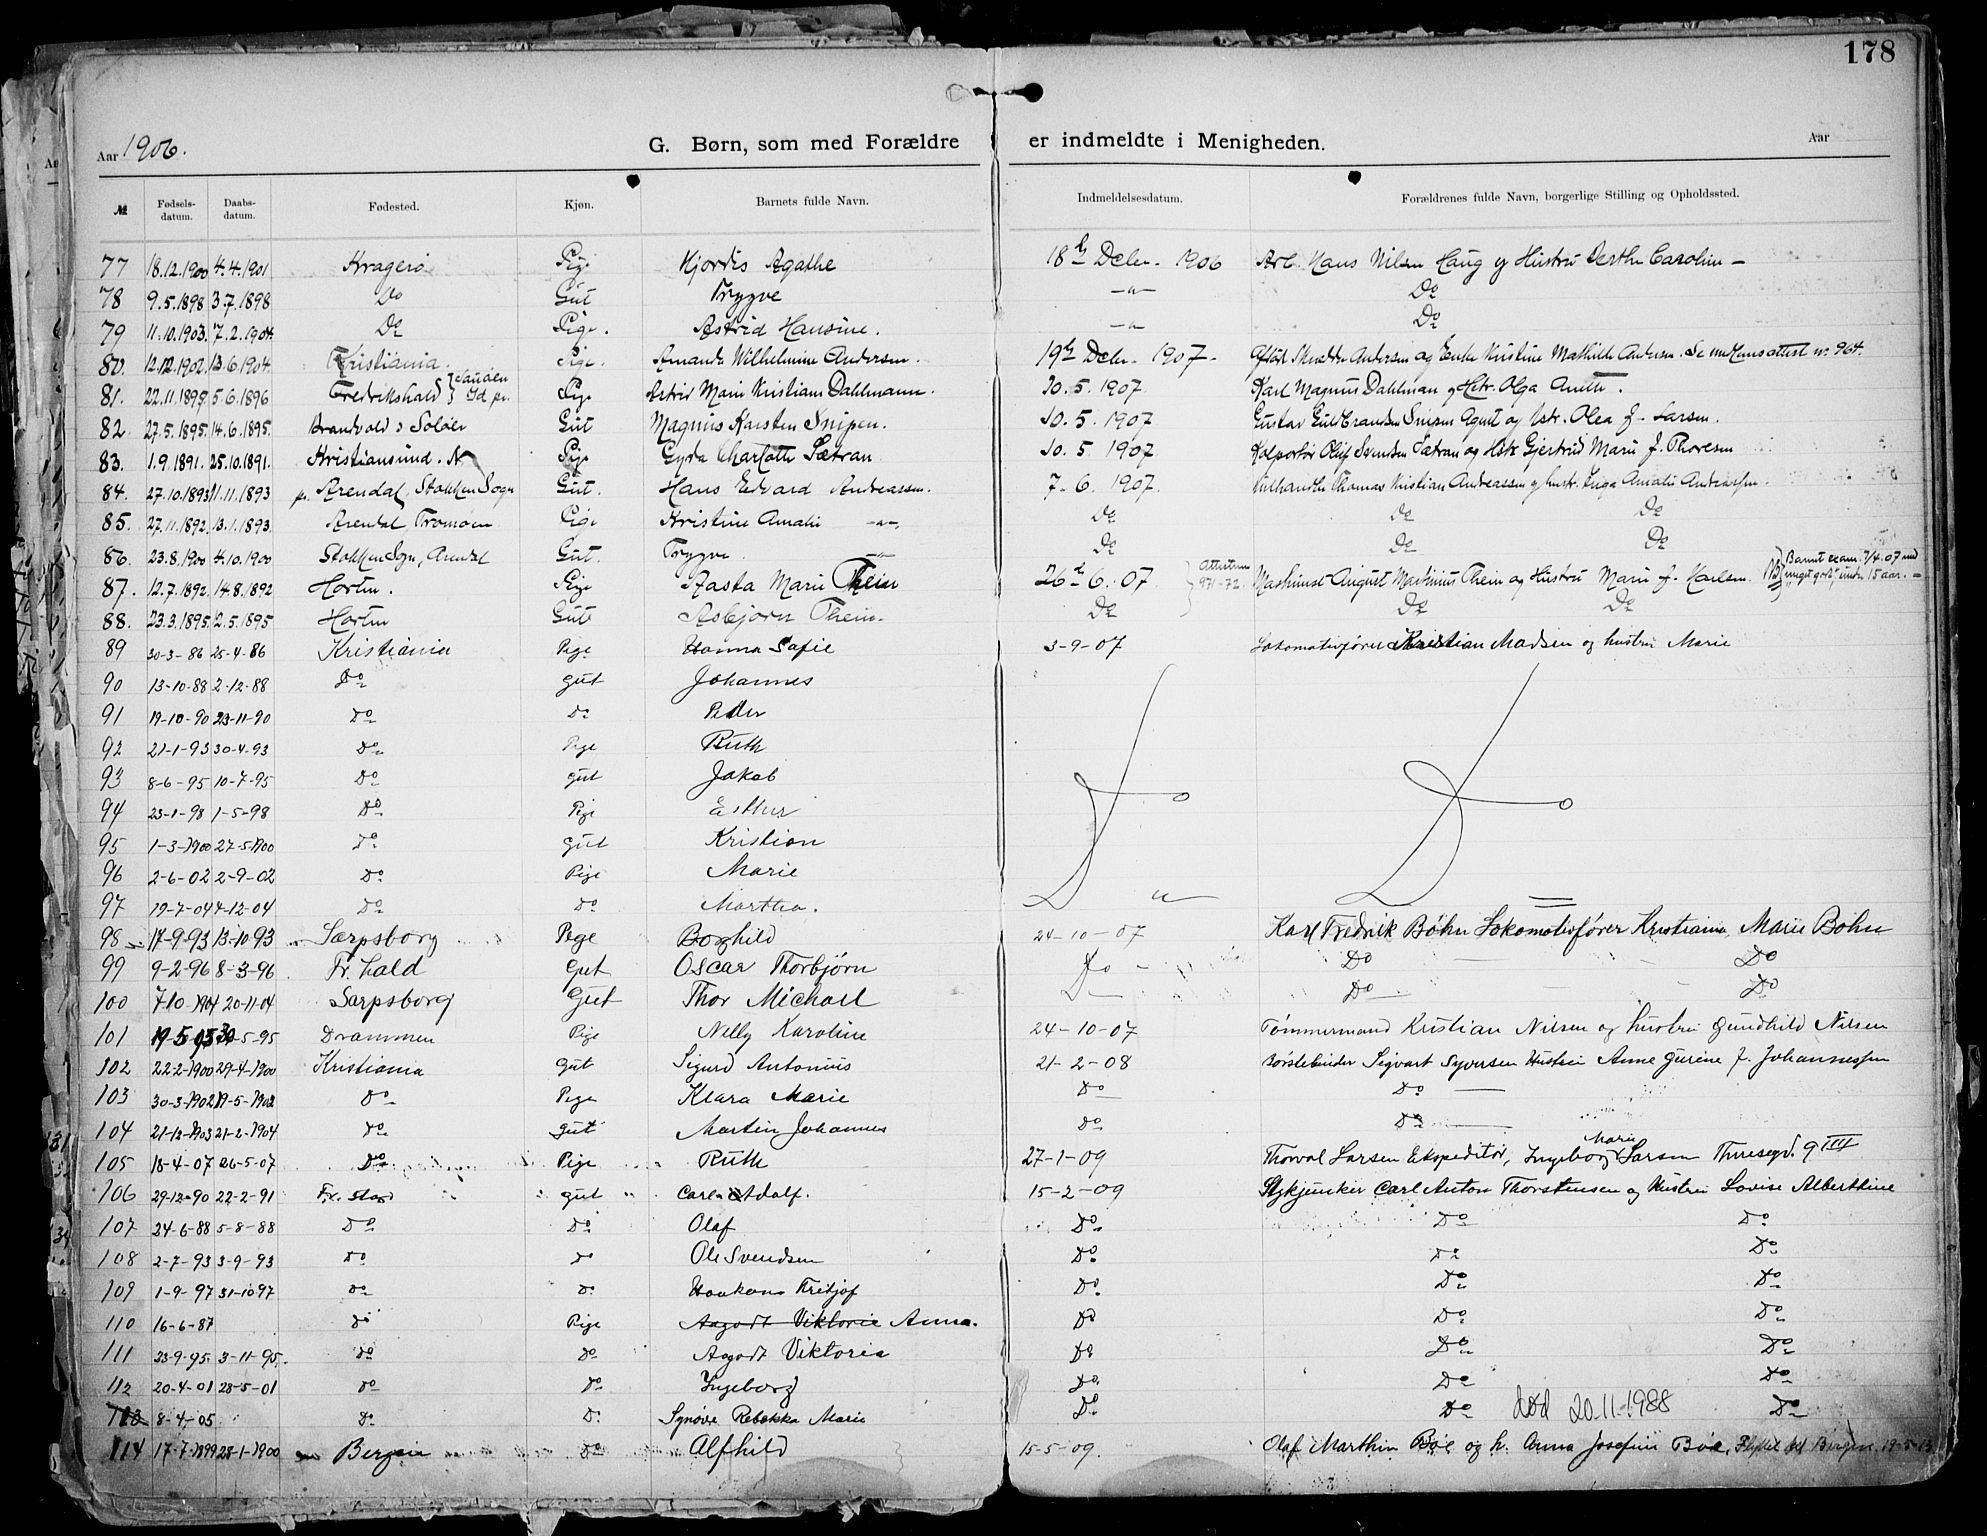 178
Aar 1906. G. Børn, som med Forældre er indmeldte i Menigheden. Aar
№ Fødsels-datum. Daabs-datum. Fødested. Kjøn. Barnets fulde Navn. Indmeldelsesdatum. Forældrenes fulde Navn, borgerlige Stilling og Opholdssted.
77 18.12.1900 4.4.1901 Kragerø Pige Hjordis Agathe 18de Decbr. 1906 Arb. Hans Nilsen Haug og Hustru Berthe Caroline –
78 9.5.1898 3.7.1898 Do Gut Trygve —"— Do
79 11.10.1903 7.2.1904 Do Pige. Astrid Hansine. —"— Do
80. 12.12.1902 13.6.1904. Kristiania. Pige. Amanda Wilhelmine Andersen. 19de Decbr. 1907. Afdøde Andersen og Enke Kristine Mathilde Andersen. Se attest nr. 964.
81. 22.11.1895 5.6.1896 Fredrikshald Id pr. Pige Astrid Marie Kristiane Dahlmann. 10.5.1907 Karl Magnus Dahlman og Hstr. Olga Anette.
82. 27.5.1895. 14.6.1895. Brandvold i Soløer Gut Magnus Karsten Snipen. 10.5.1907 Gustav Guldbrandsen Snipen Agent og Hstr. Olea f. Larsen.
83. 1.9.1891. 25.10.1891. Kristiansund. N Pige Gyda Charlotte Sætran 10.5 1907 Kolportør Oluf Svendsen Sætran og Hstr Gjertrud Marie f. Thoresen
84. 27.10.1893 11.11.1893 pr. Arendal, Stokken Sogn Gut. Hans Edvard Andreassen. 7-6.1907. Thomas Kristian Andreassen og hustr. Inga Amalie Andreassen.
85. 27.11.1892. 13.1.1893. Arendal Tromøen Pige Kristine Amalie —"—. Do Do Do
86. 23.8.1900 4.10.1900 Stokken Sogn, Arendal Gut. Trygve —"— Do Do Do
87. 12.7.1892. 14.8.1892 Horten. Pige Aasta Marie Thein 26de 6. 07 Attesterne 971-72. Maskinist August Mathinius Thein og Hustru Marie f. Karlsen. NB Barnet exam. 7/4.07 med "meget godt", under 15 aar. –
88. 23.3.1895. 12.5.1895 Horten Gut Asbjørn Thein. Do Do Do
89 30-3-86 25-4-86 Kristiania Pige Hanna Sofie 3-9-07 Lokomotivfører Kristian Madsen og hustru Marie
90 13-10-88 2-12-88 Do gut Johannes
91 19-10-90 23-11-90 Do Do Peder
92 21-1-93 30-4-93 Do Pige Ruth
93 8-6-95 10-7-95 Do gut Jakob
94 23-1-98 1-5-98 Do Pige Esther Do Do
95 1-3-1900 27-5-1900 Do gut Kristian
96 2-6-02 2-9-02 Do Pige Marie
97 19-7-04 4-12-04 Do Do Martha. "
98 17-9-93 13-10-93 Sarpsborg Pige Borghild 24-10-07 Karl Fredrik Bøhn Lokomotivfører Kristiania, Marie Bøhn
99 9-2-96 8-3-96 Fr. hald Gut Oscar Thorbjørn Do Do Do
100 7-10-1904 20-11-04 Sarpsborg Gut Thor Michael Do Do Do
101 19-5-95 30-5-95 Drammen Pige Nelly Karoline 24-10-07 Tømmermand Kristian Nilsen og hustru Gundhild Nilsen
102 22-2-1900 29-4-1900 Kristiania gut Sigurd Antonius 21-2-08 Børstebinder Sigvart Syversen Hustru Anne Gurine f. Johannessen
103 30-3-1902 19-5-1902 Do Pige Klara Marie Do Do
104 21-12-1903 21-2-1904 Do gut Martin Johannes Do Do
105 18-4-07 26-5-07 Do Pige Ruth 27-1-09 Thorval Larsen Ekspeditør, Ingeborg Marie Larsen Thuresegd. 9 III
106 29-12-90 22-2-91 Fr. stad gut Carl Adolf. 15-2-09 Stykjunker Carl Anton Thorstensen og Hustru Lovise Alberthine
107 24-6-88 5-8-88 Do Do Olaf Do Do Do
108 2-7-93 3-9-93 Do Do Ole Svendsen Do Do Do
109 1-9-97 31-10-97 Do Do Haakon Fritjof Do Do Do
110 16-6-87 Do Pige Aagodt Viktoria Anna. Do Do Do
111 23-9-95. 3-11-95. Do Do Aagodt Viktoria Do Do Do
112 20-4-01 28-5-01 Do Do Ingeborg Do Do Do
113 8-4-05 Do Do Synøve Rebekka Marie Do Do død 20.11.1988 Do
114 17-7-1899 28-1-1900 Bergen Do Alfhild 15-5-09. Olaf Marthin Bøe og h. Anna Josefine Bøe, Flyttet til Bergen 19-5-13